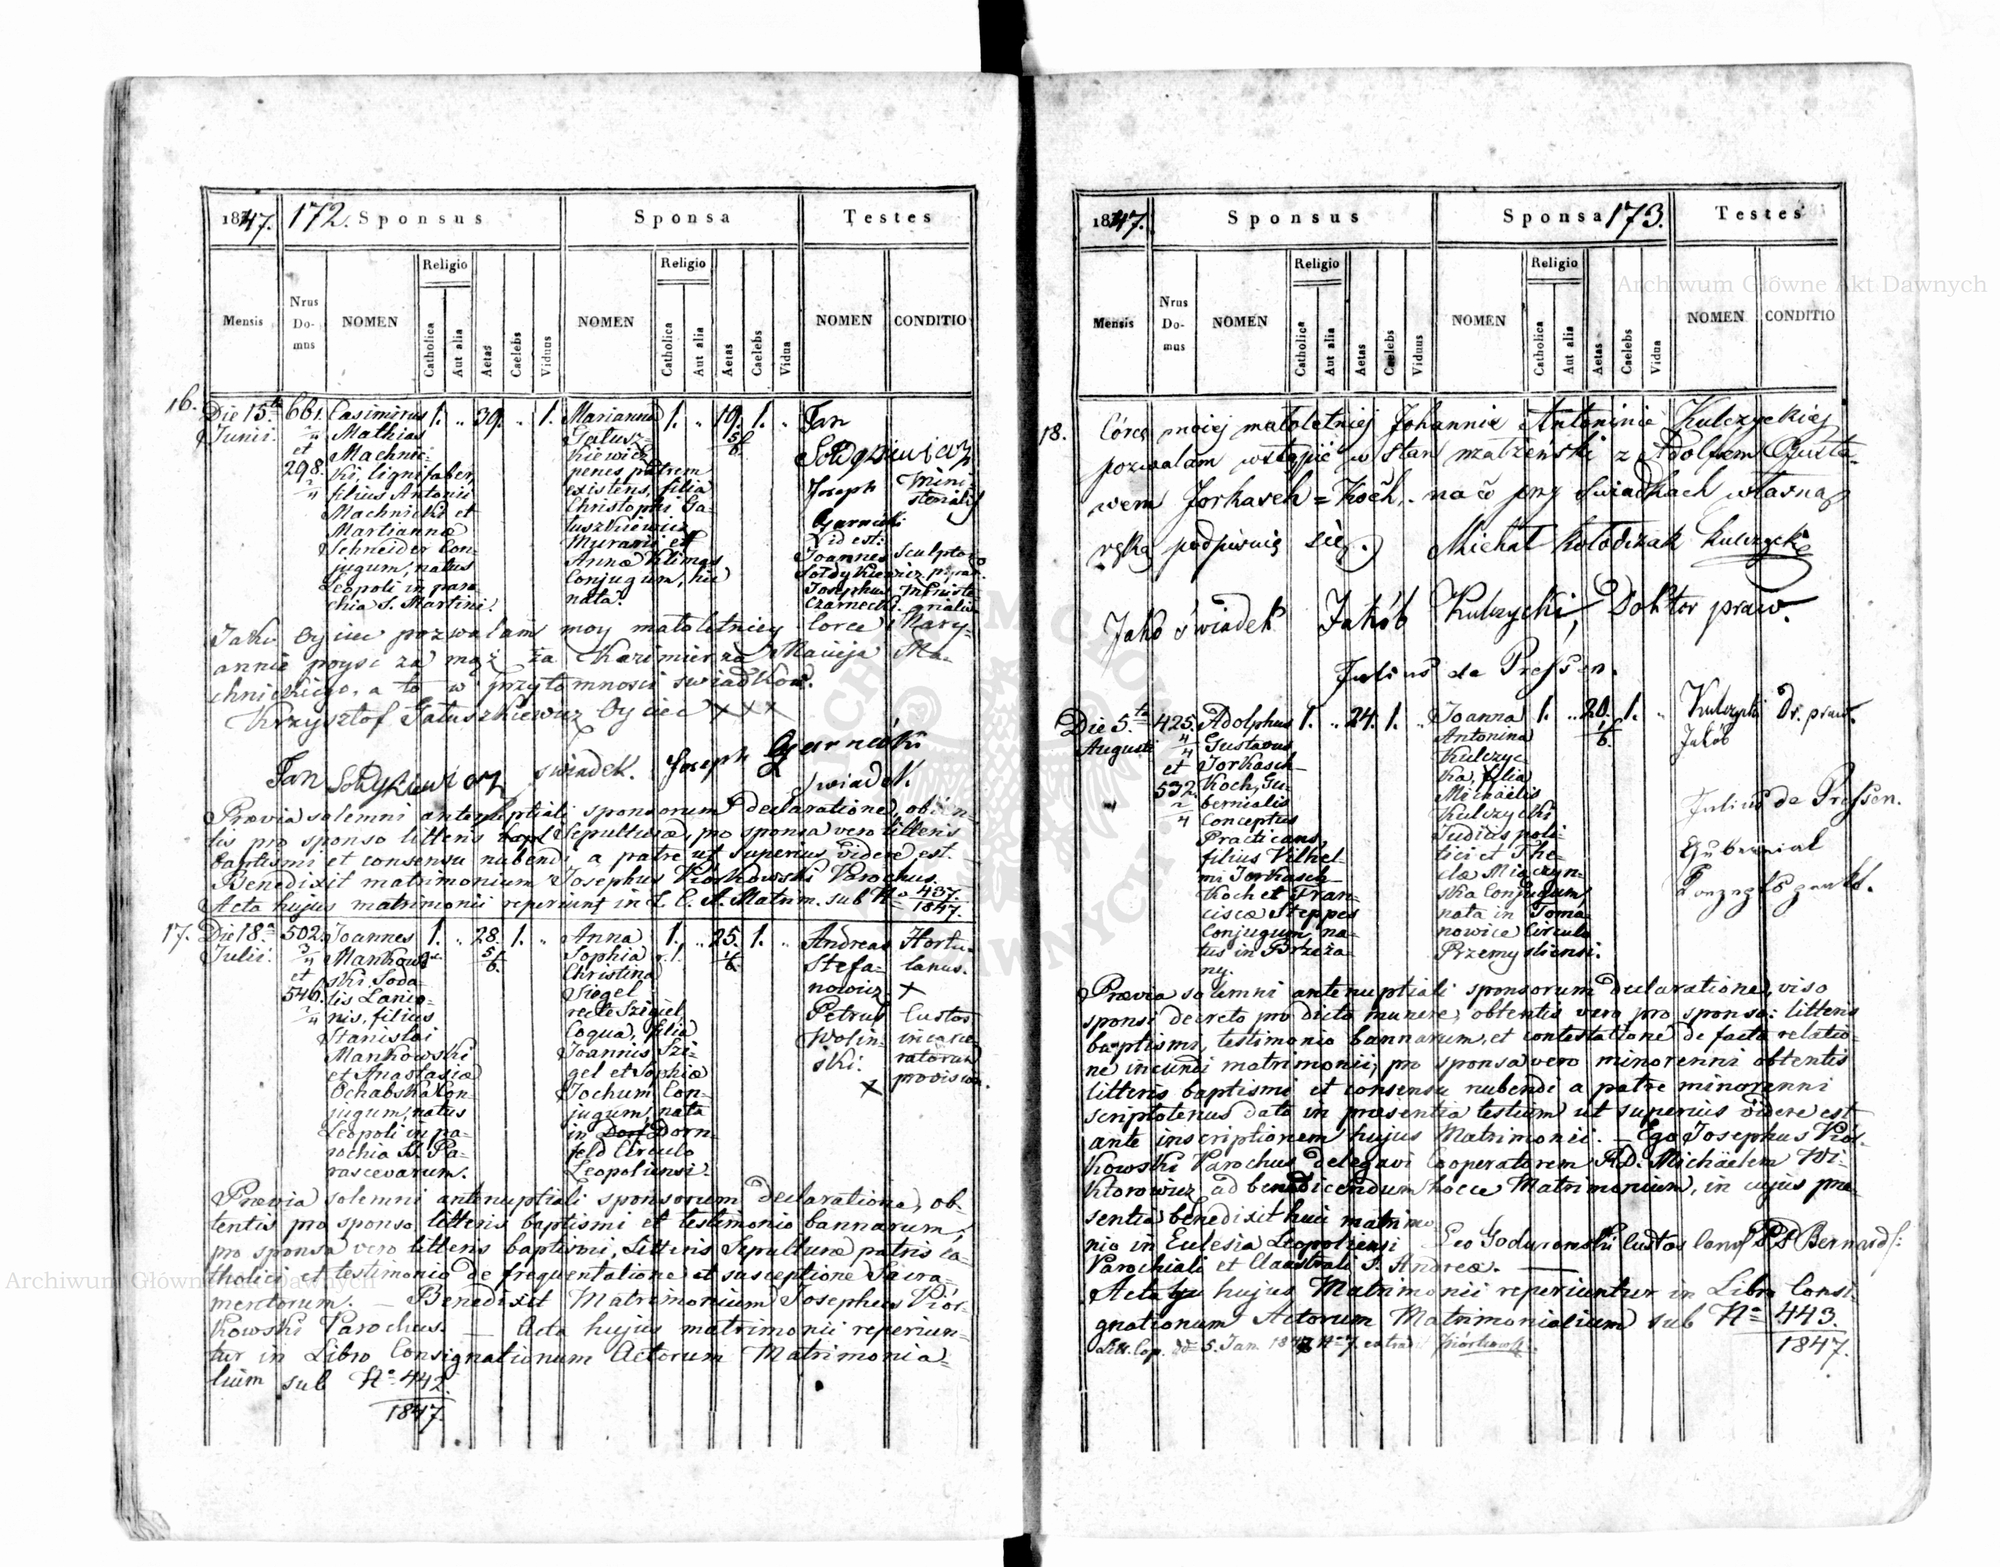 1847. 172. Sponsus Sponsa Testes
Mensis
Nrus Domus
NOMEN
Religio
Catholica
Aut alia
Aetas
Caelebs
Viduus
NOMEN
Religio
Catholica
Aut alia
Aetas
Caelebs
Vidua
NOMEN
CONDITIO
16.
Die 15ta
Junii.
661.
2/4
et
298.
2/4
Casimirus
Mathias
Machnic-
ki, lignifaber,
filius Antonii
Machnicki et
Martiannæ
Schneider Con-
jugum, natus
Leopoli in paro
chia S. Martini.
1. " 39. " 1.
Marianna
Gałusz-
kiewicz
penes patrem
existens, filia
Christophi Ga-
łuszkiewicz
Murarii et
Annæ Klimas
Conjugum, hic
nata.
1. " 19. 1. "
5/6
Jan
Sołdykiewicz
Joseph
Garnecki
id est:
Joannes
Sołdykiewicz
Josephus
Czarnecki.
Mini-
sterialis
Sculptor
Jako Oyciec pozwalam moy małoletniey Corce Mary-
annie poyść za mąż za Kazimierza Macieja Ma-
chnickiego, a to w przytomności swiadków.
Krzysztof Gałuszkiewicz Oyciec XXX
Jan Sołdykiewicz swiadek. Joseph Garnecki
swiadek.
Prævia solemni antenuptiali sponsorum declaratione, obten-
tis pro sponso litteris Sepulturæ, pro sponsa vero litteris
baptismi et consensu nubendi, a patre ut superius videre est. _
Benedixit matrimonium Josephus Piórkowski Parochus.
Acta hujus matrimonii reperiunt in L. C. A. Matrim. sub No 437.
1847.
17.
Die 18a
Julii.
502.
3/4
et
546.
2/4
Joannes
Mankow-
ski Soda-
lis Lanio-
nis, filius
Stanislai
Mankowski
et Anastasiæ
Ochabska Con-
jugum, natus
Leopoli in pa-
rochia S. Pa-
rascevarum.
1. " 28. 1. "
5/6
Anna
Sophia
Christina
Siegel
recte Szigiel
Coqua, filia
Joannis Szi-
gel et Sophiæ
Jochum Con-
jugum, nata
in Dorf Dorn-
feld Circulo
Leopoliensi.
1. " 25. 1. "
1/6
Andreas
Stefa-
nowicz
Petrus
Wolin-
ski.
X
Hortu-
lanus.
X
Custos
incarce-
ratorum
Prævia solemni antenuptiali sponsorum declaratione, ob-
tentis pro sponso litteris baptismi et testimonio bannorum,
pro sponsa vero litteris baptismi, Litteris Sepulturæ patris ca-
tholici et testimonio de frequentatione et susceptione Sacra-
mentorum. _ Benedixit Matrimonium Josephus Piór-
kowski Parochus. _ Acta hujus matrimonii reperiun-
tur in Libro Consignationum Actorum Matrimonia-
lium sub No 442.
1847.
1847. Sponsus Sponsa 173. Testes
Mensis
Nrus Domus
NOMEN
Religio
Catholica
Aut alia
Aetas
Caelebs
Viduus
NOMEN
Religio
Catholica
Aut alia
Aetas
Caelebs
Vidua
NOMEN
CONDITIO
18.
Córce moiej małoletniej Johannie Antoninie Kulczyckiej
pozwalam wstąpić w stan małżeński z Adolfem Gusta-
wem Jorkasch = Koch, na co przy świadkach własną
ręką podpisuię się. Michał Kołodczak Kulczycki
Jako świadek Jakób Kulczycki, Doktor praw.
Julius de Pressen.
Die 5ta
Augusti
425.
4/4
et
532.
2/4
Adolphus
Gustavus
Jorkasch
Koch, Gu-
bernialis
Conceptus
Practicans
filius Vilhel-
mi Jorkasch
Koch et Fran-
ciscæ Steppes
Conjugum, na-
tus in Brzeża-
ny.
1. " 24. 1. "
Joanna
Antonina
Kulczyc-
ka, filia
Michaëlis
Kulczycki
Judicis poli-
tici et The-
clæ Miączyn-
ska Conjugum,
nata in Toma-
nowice Circulo
Przemysliensi.
1. " 20. 1. "
1/6
Kulczycki
Jakób
Dr. praw.
Julius de Pressen.
Gubernial
Prævia solemni antenuptiali sponsorum declaratione, viso
sponsi decreto pro dicto munere, obtentis vero pro sponso: litteris
baptismi, testimonio bannorum, et contestatione de facta relatio-
ne ineundi matrimonii; pro sponsa vero minorenni obtentis
litteris baptismi et consensu nubendi a patre minorenni
scriptotenus dato in præsentia testium ut superius videre est
ante inscriptionem hujus Matrimonii. _ Ego Josephus Piór-
kowski Parochus delegavi Cooperatorem A.D. Michäelem Wi-
ktorowicz ad benedicendum hocce Matrimonium, in cujus præ-
sentia benedixit huic matrimo
nio in Eclesia Leopoliensi Leo Godurowski Custos PP Bernard:
Parochiali et Claustrali S. Andreæ. _
Acta hujus Matrimonii reperiuntur in Libro Consi-
gnationum Actorum Matrimonialium sub No 443.
1847.
Archiwum Główne Akt Dawnych
Archiwum Główne Akt Dawnych
ARCHIWUM GŁÓWNE AKT DAWNYCH